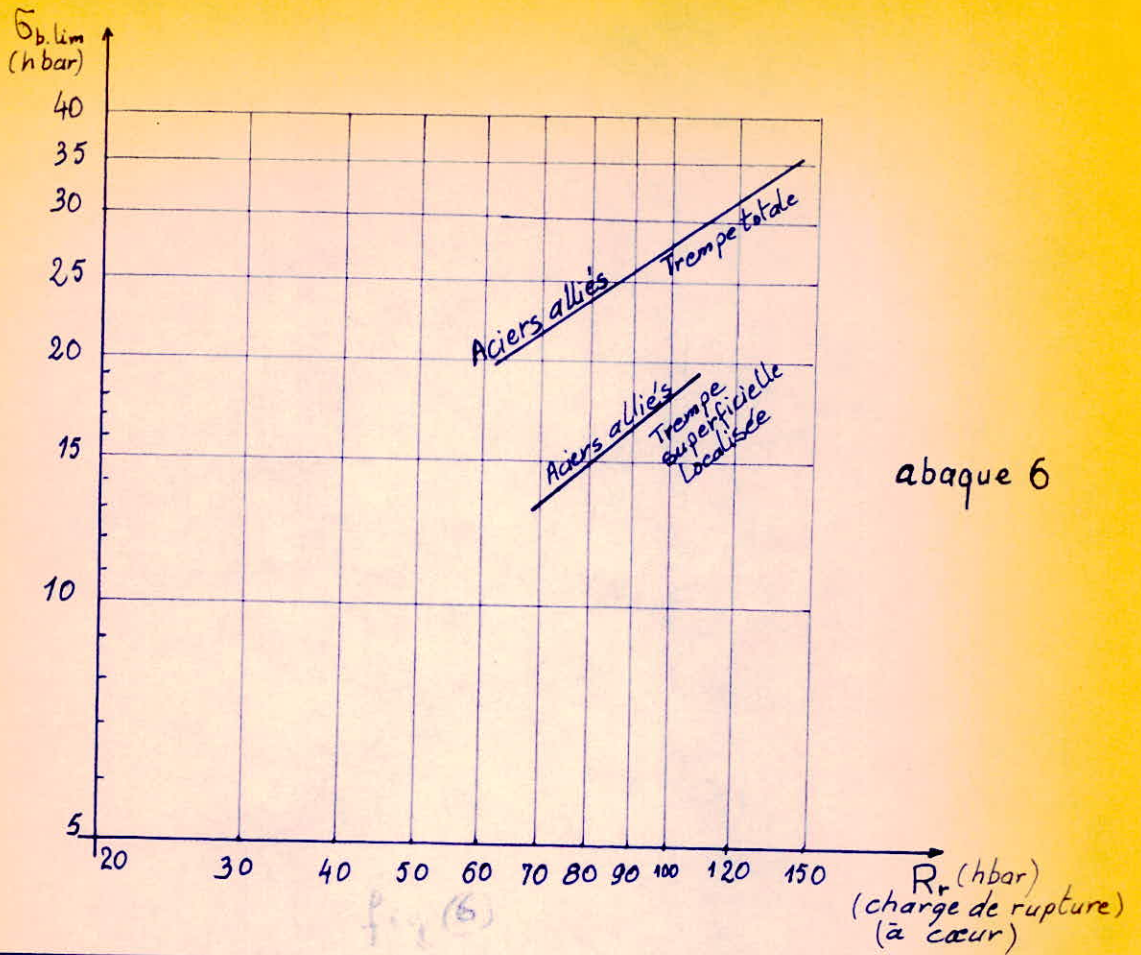 σb.lim
(hbar)
40
35
30
25
20
15
10
5
Aciers alliés
Trempe totale
Aciers alliés
Trempe
superficielle
Localisée
abaque 6
20 30 40 50 60 70 80 90 100 120 150
Rr (hbar)
(charge de rupture)
(à cœur)
fig (6)